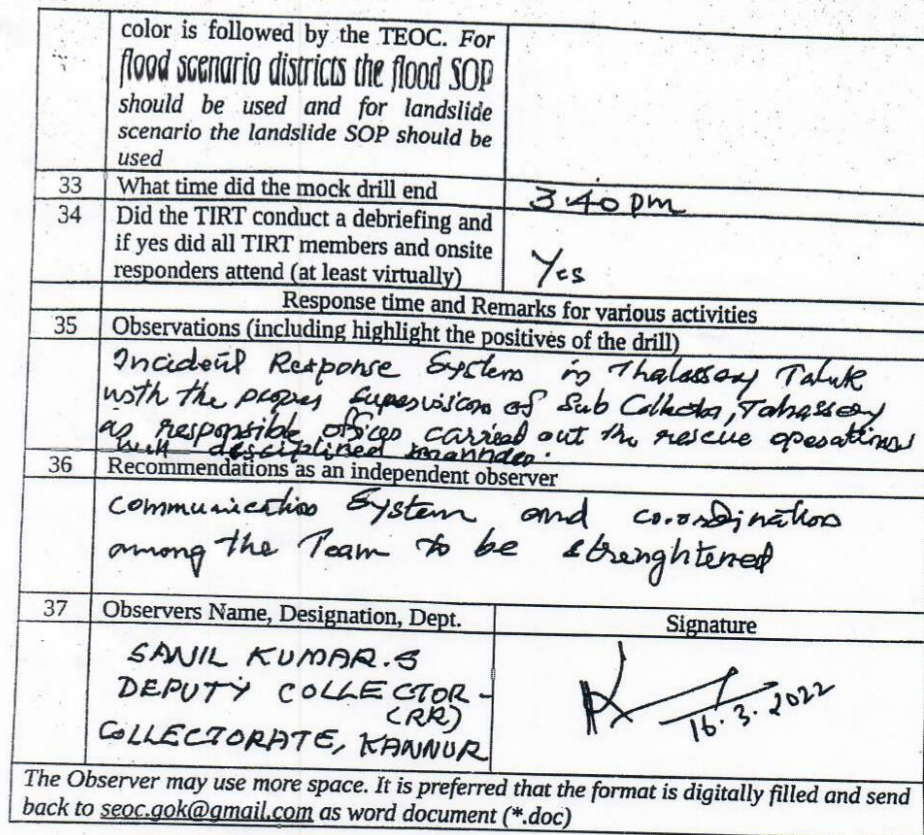 color is followed by the TEOC. For
flood scenario districts the flood SOP
should be used and for landslide
scenario the landslide SOP should be
used
33 What time did the mock drill end 3.40 pm
34 Did the TIRT conduct a debriefing and
if yes did all TIRT members and onsite
responders attend (at least virtually) Yes
Response time and Remarks for various activities
35 Observations (including highlight the positives of the drill)
Incident Response System in Thalassery Taluk
with the proper supervision of Sub Collector, Thalassery
as responsible officer carried out the rescue operations
with disciplined manner.
36 Recommendations as an independent observer
Communication System and co.ordination
among the Team to be strenghtened
37 Observers Name, Designation, Dept. Signature
SANIL KUMAR.S
DEPUTY COLLECTOR -
(RR)
COLLECTORATE, KANNUR
16.3.2022
The Observer may use more space. It is preferred that the format is digitally filled and send
back to seoc.gok@gmail.com as word document (*.doc)